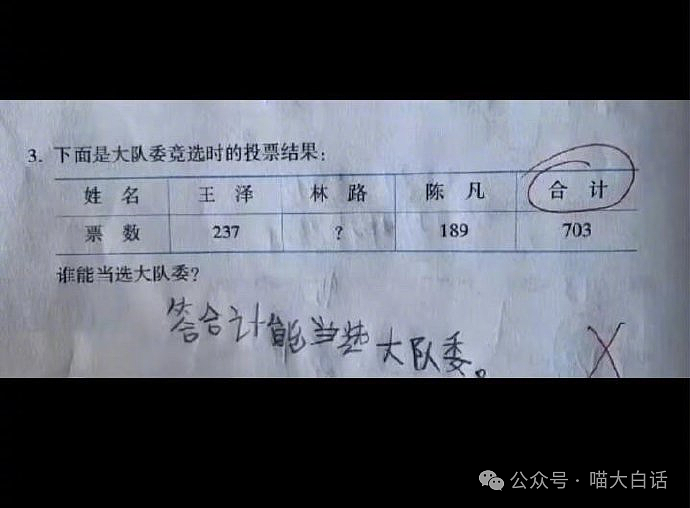 3. 下面是大队委竞选时的投票结果：
姓 名 王 泽 林 路 陈 凡 合 计
票 数 237 ? 189 703
谁能当选大队委？
答合计能当选大队委。
公众号·喵大白话